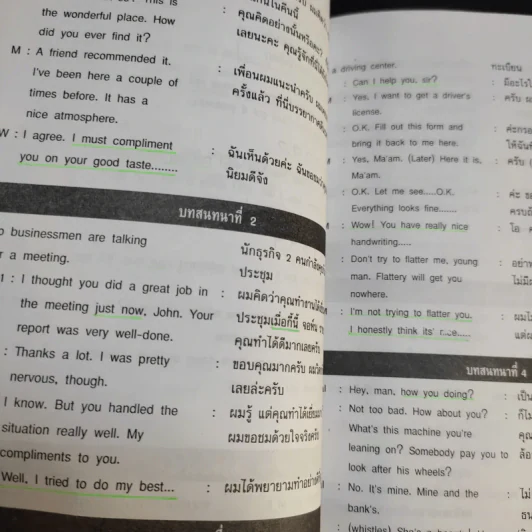 the wonderful place. How
did you ever find it?
M : A friend recommended it.
I've been here a couple of
times before. It has a
nice atmosphere.
W : I agree. I must compliment
you on your good taste........
: คุณคิดอย่างนั้นหรือคะ
เลยนะคะ คุณรู้จักที่นี่ได้
: เพื่อนผมแนะนำครับ
ครั้งแล้ว ที่นี่บรรยากาศ
: ฉันเห็นด้วยค่ะ
นิยมดีจัง
บทสนทนาที่ 2
businessmen are talking
a meeting.
: I thought you did a great job in
the meeting just now, John. Your
report was very well-done.
: Thanks a lot. I was pretty
nervous, though.
I know. But you handled the
situation really well. My
compliments to you.
Well, I tried to do my best...
นักธุรกิจ 2 คน
ประชุม
: ผมคิดว่าคุณทำงานได้
ประชุมเมื่อกี้นี้ จอห์น
คุณทำได้ดีมากเลยครับ
: ขอบคุณมากครับ
เลยล่ะครับ
: ผมรู้ แต่คุณทำได้เยี่ยม
ผมขอชมด้วยใจจริงครับ
: ผมได้พยายามทำอย่างดี
driving center.
: Can I help you, sir?
: Yes, I want to get a driver's
license.
: O.K. Fill out this form and
bring it back to me here.
: Yes, Ma'am. (Later) Here it is,
Ma'am.
: O.K. Let me see.....O.K.
Everything looks fine.......
: Wow! You have really nice
handwriting.....
: Don't try to flatter me, young
man. Flattery will get you
nowhere.
: I'm not trying to flatter you.
I honestly think its'
ทะเบียน
: มีอะไร
: ครับ
: ค่ะกรอ
ให้ฉัน
: ครับ
: ค่ะ
: โอ
: อย่า
ไม่มี
: ผมไ
แต่
บทสนทนาที่ 4
: Hey, man, how you doing?
: Not too bad. How about you?
What's this machine you're
leaning on? Somebody pay you to
look after his wheels?
: No. It's mine. Mine and the
bank's.
: (whistles)
: เป็น
: ก็ไ
คุณ
ล้อ
: ไม่
ธน